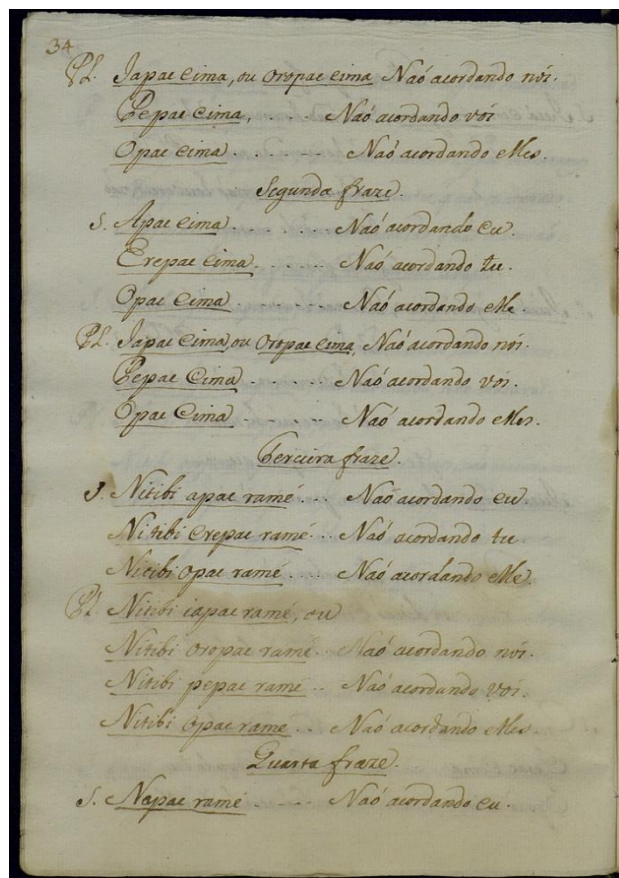 34
Pl. Iapac eima, ou oropac eima Naó acordando nós.
Pepac eima, . . . Naó acordando vós
Opac eima . . . . . . Naó acordando elles.
Segunda fraze.
S. Apac eima . . . . . . Naó acordando eu.
Erepac eima . . . . . Naó acordando tu.
Opac eima . . . . . . Naó acordando elle
Pl. Iapac eima, ou oropac eima, Naó acordando nós.
Pepac eima . . . . . Naó acordando vós.
Opac eima . . . . . . Naó acordando elles.
Terceira fraze.
S. Nitibi apac ramé . . . Naó acordando eu
Nitibi erepac ramé . . Naó acordando tu
Nitibi opac ramé . . . Naó acordando elle.
Pl. Nitibi iapac ramé, ou
Nitibi oropac ramé . . Naó acordando nós.
Nitibi pepac ramé . . Naó acordando vós.
Nitibi opac rame . . . Naó acordando elles.
Quarta fraze.
S. Napac ramé . . . . . Naó acordando eu.